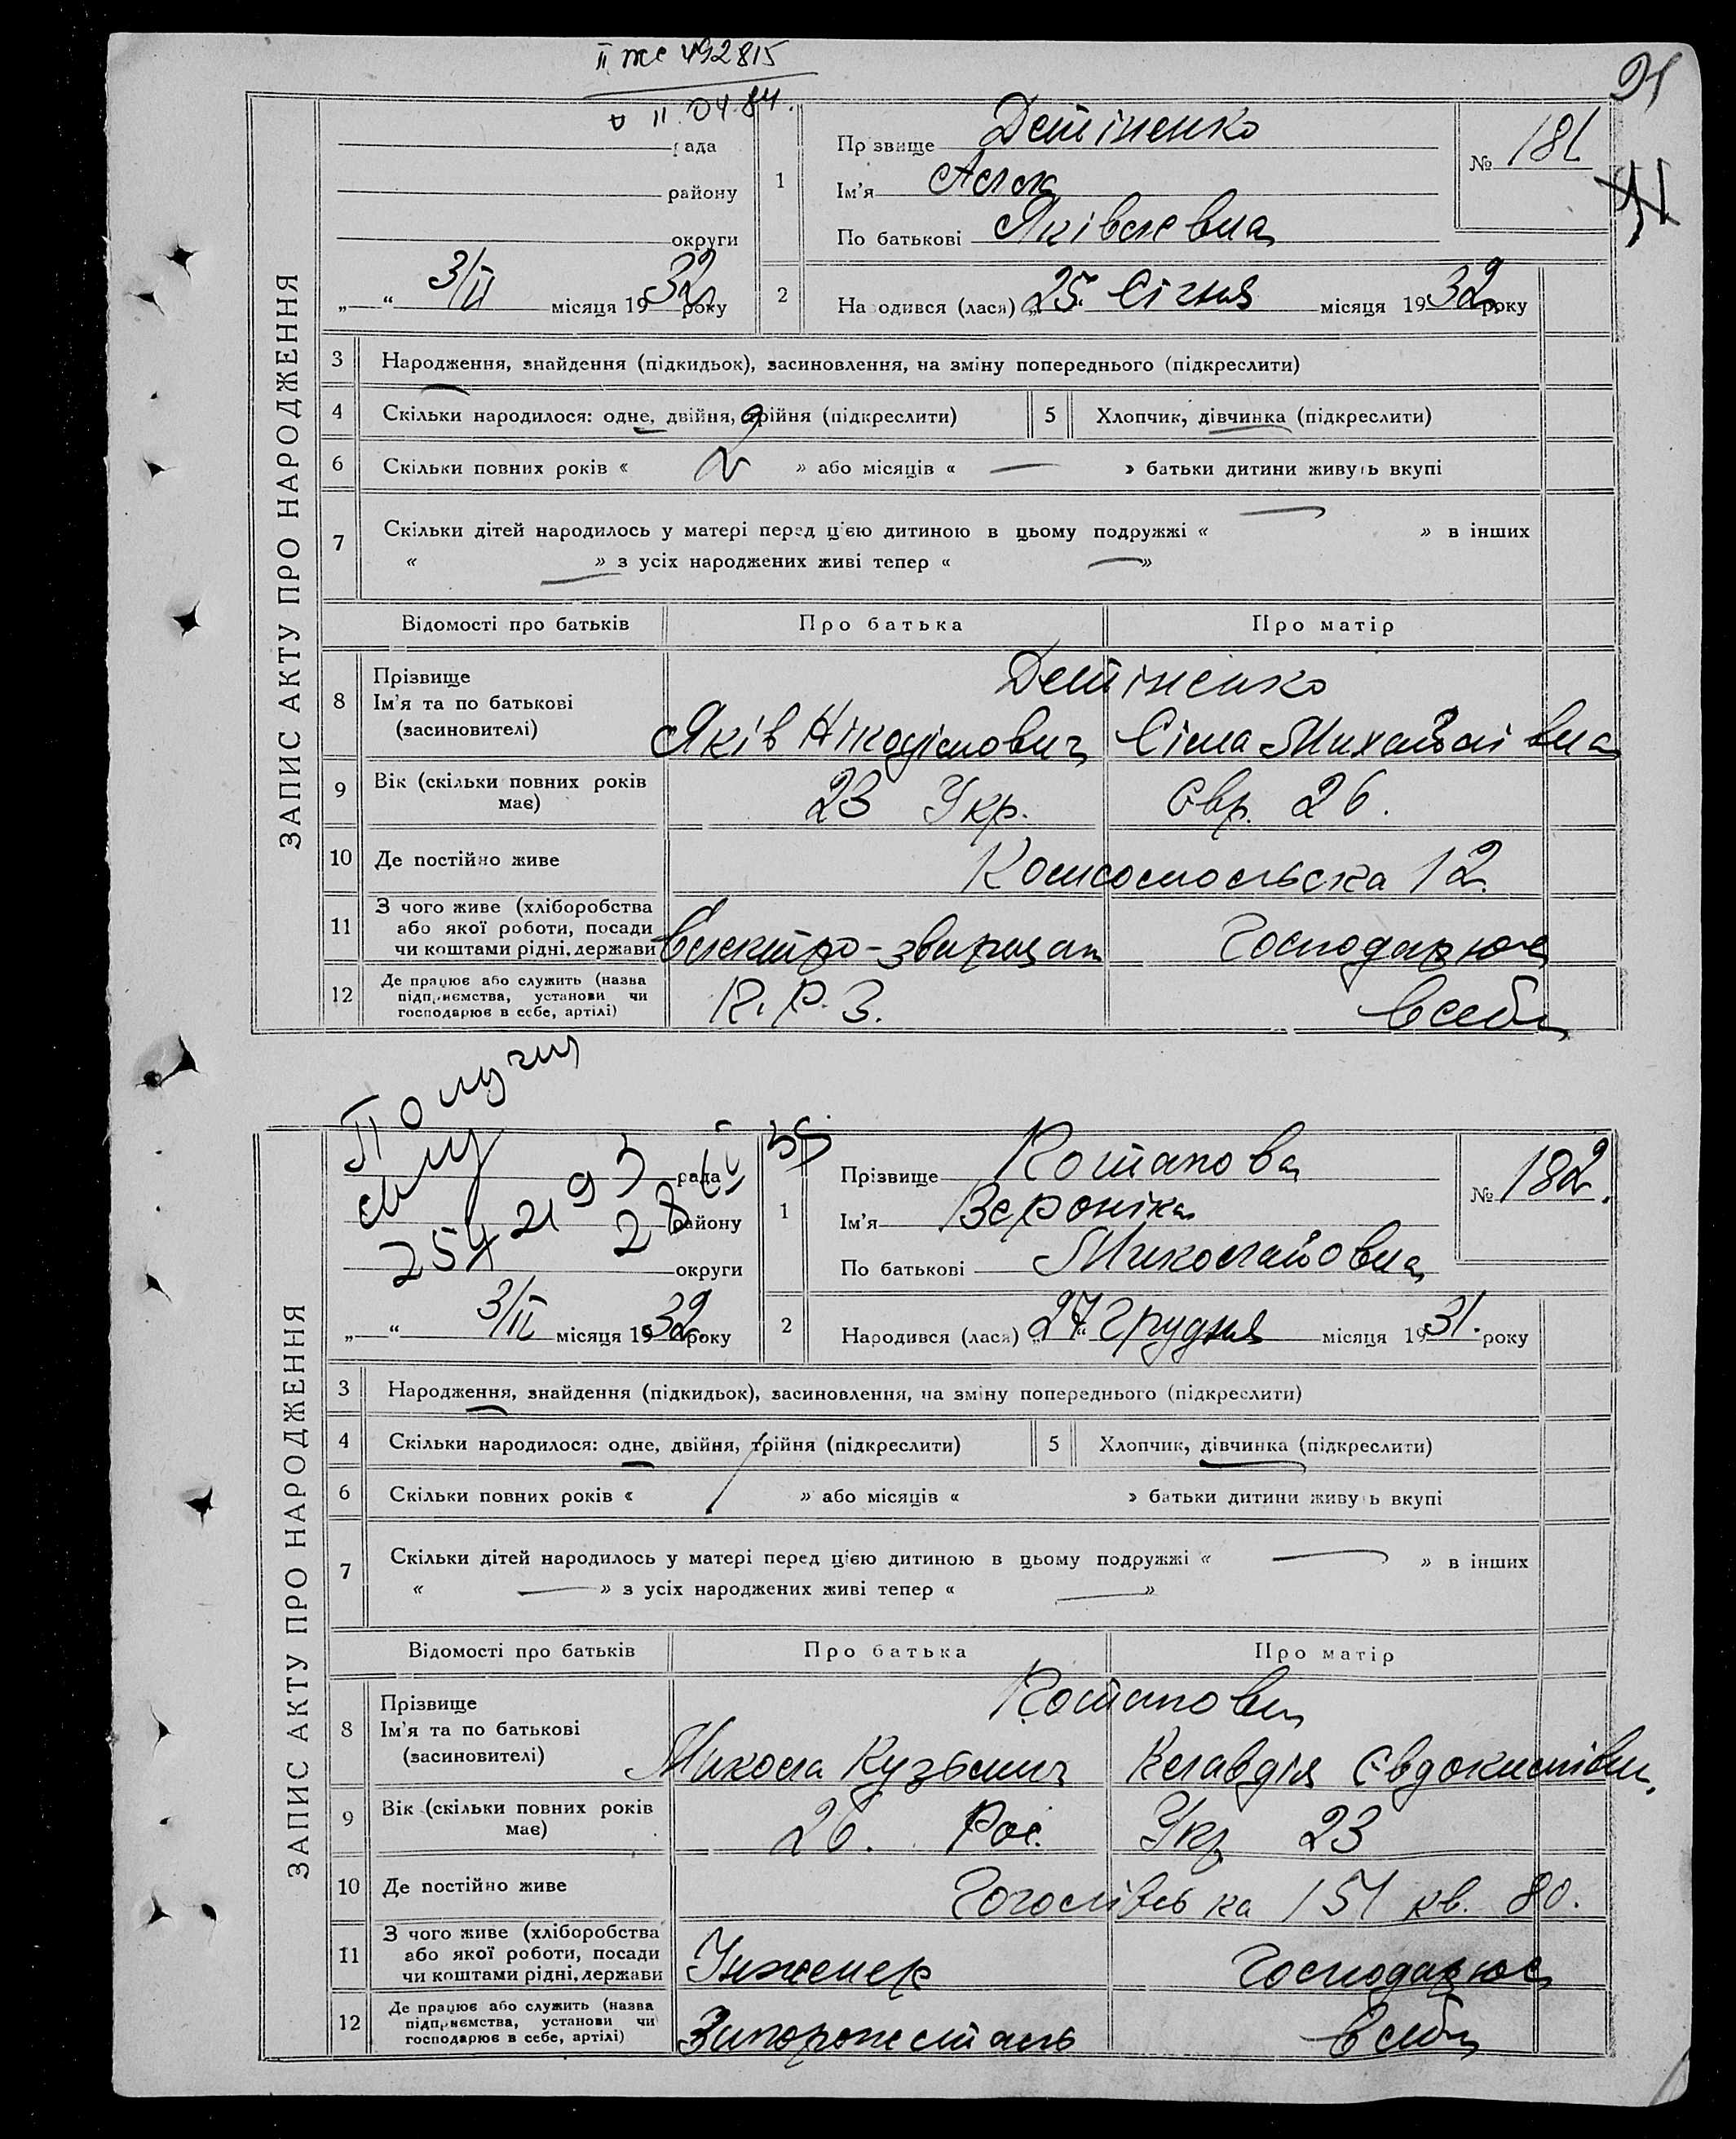 II же 492815
II.04.84.
91
ЗАПИС АКТУ ПРО НАРОДЖЕННЯ
рада
району
округи
„ “ 3/II місяця 1932 року
1
Прізвище Детіненко
Ім'я
По батькові Яківлевна
№ 181
2 Народився (лася) „25. Січня місяця 1932 року
3 Народження, знайдення (підкидьок), засиновлення, на зміну попереднього (підкреслити)
4 Скільки народилося: одне, двійня, трійня (підкреслити) 5 Хлопчик, дівчинка (підкреслити)
6 Скільки повних років « 2 » або місяців « — » батьки дитини живуть вкупі
7 Скільки дітей народилось у матері перед цією дитиною в цьому подружжі « — » в інших
« — » з усіх народжених живі тепер « — »
Відомості про батьків Про батька Про матір
8 Прізвище
Ім'я та по батькові
(засиновителі)
Детіненко
Яків Нікодімович Сіма Михайлівна
9 Вік (скільки повних років має) 23 Укр. Євр. 26.
10 Де постійно живе Комсомольська 12.
11 З чого живе (хліборобства
або якої роботи, посади
чи коштами рідні, держави
Електро-зварщик Господарює
12 Де працює або служить (назва
підприємства, установи чи
господарює в себе, артілі)
К. Р. З. В себе
ЗАПИС АКТУ ПРО НАРОДЖЕННЯ
рада
району
округи
„ “ 3/II місяця 1932 року
1
Прізвище Потапова
Ім'я Вероніка
По батькові Миколайовна
№ 182.
2 Народився (лася) „27“ Грудня місяця 1931. року
3 Народження, знайдення (підкидьок), засиновлення, на зміну попереднього (підкреслити)
4 Скільки народилося: одне, двійня, трійня (підкреслити) 5 Хлопчик, дівчинка (підкреслити)
6 Скільки повних років « / » або місяців « » батьки дитини живуть вкупі
7 Скільки дітей народилось у матері перед цією дитиною в цьому подружжі « — » в інших
« — » з усіх народжених живі тепер « — »
Відомості про батьків Про батька Про матір
8 Прізвище
Ім'я та по батькові
(засиновителі)
Потапови
Микола Кузьмич Клавдія Євдокимівн.
9 Вік (скільки повних років має) 26. Рос. Укр 23
10 Де постійно живе Гоголівська 151 кв. 80.
11 З чого живе (хліборобства
або якої роботи, посади
чи коштами рідні, держави
Інженер Господарює
12 Де працює або служить (назва
підприємства, установи чи
господарює в себе, артілі)
Запорожсталь В себе